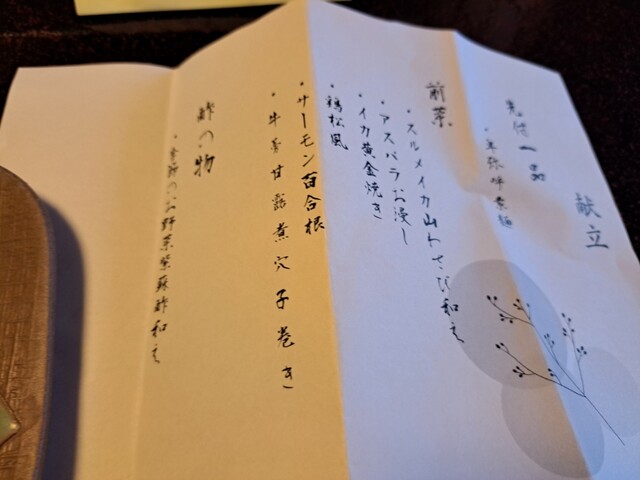 献立
先付一品
・卑弥呼素麺
前菜
・スルメイカ山わさび和え
・アスパラお浸し
・イカ黄金焼き
・鶏松風
・サーモン百合根
・牛蒡甘露煮穴子巻き
酢の物
・季節のお野菜紫蘇酢和え